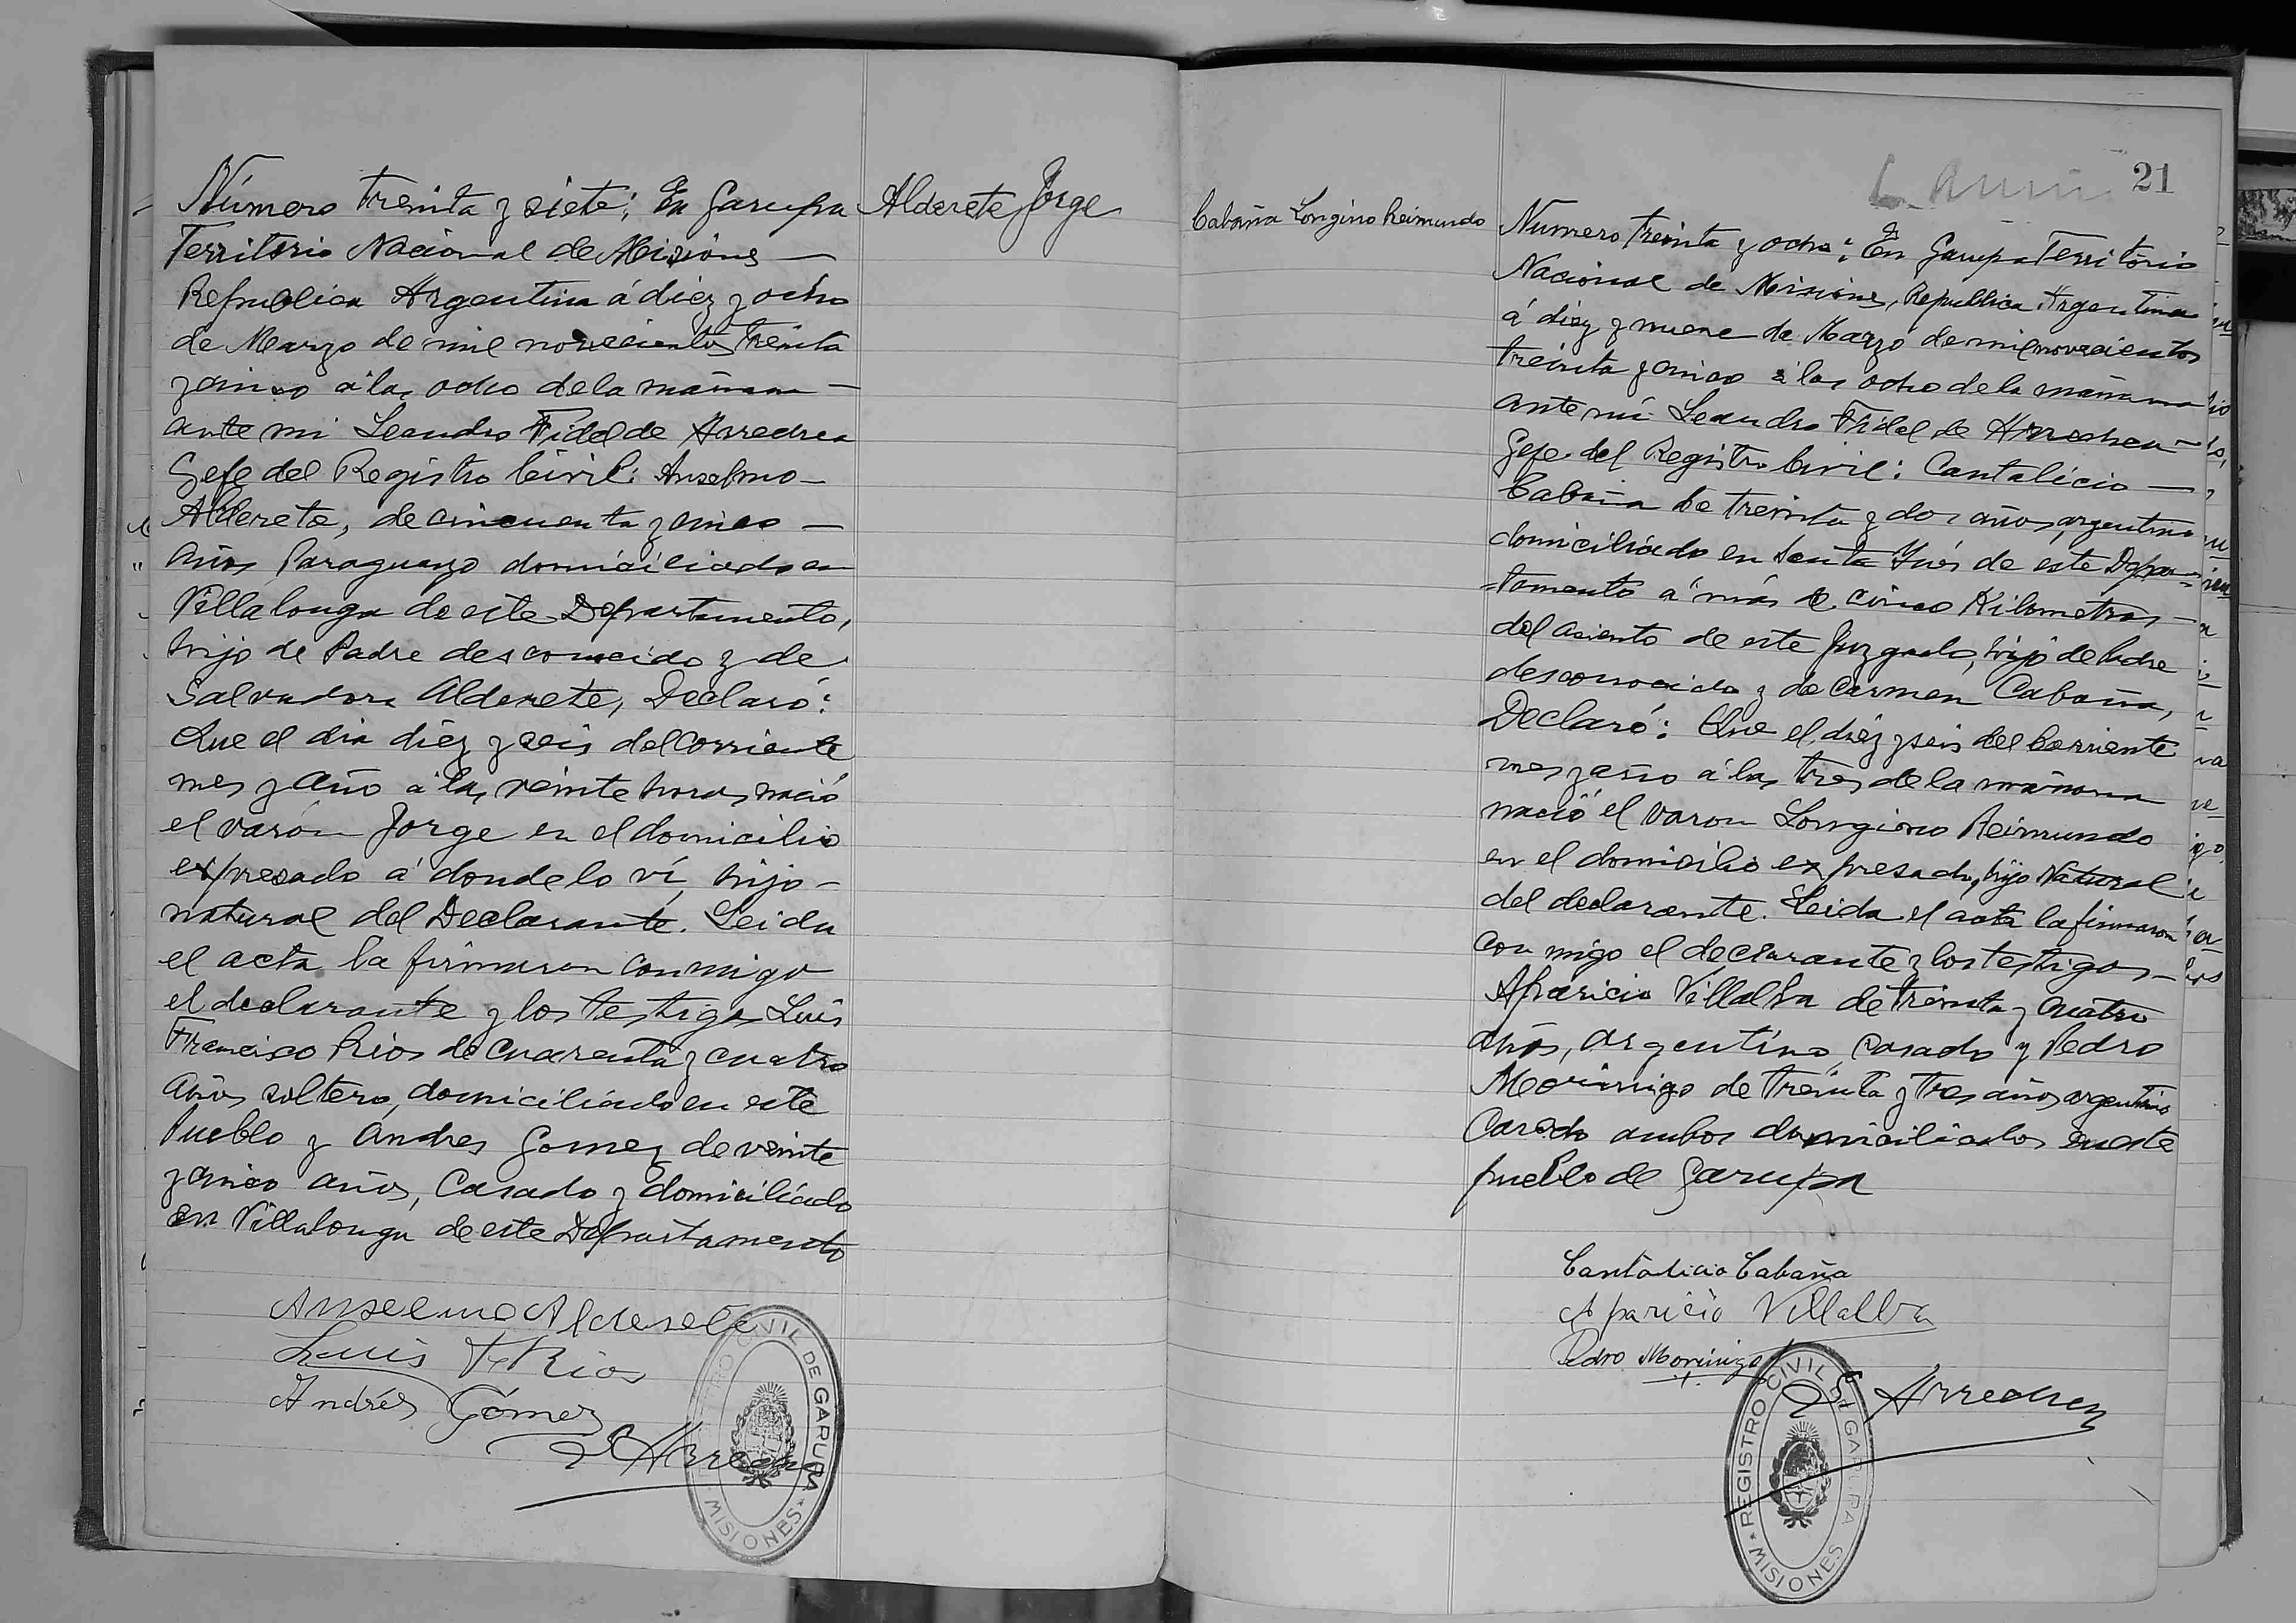 Número treinta y siete; En Garupa
Territorio Nacional de Misiones —
Republica Argentina á diez y ocho
de Marzo de mil novecientos treinta
y cinco á las ocho de la mañana —
ante mi Leandro Fidel de Arrechea
Gefe del Registro Civil: Anselmo —
Alderete, de cincuenta y cinco —
años Paraguayo domiciliado en
Villalonga de este Departamento,
hijo de Padre desconocido y de
Salvadora Alderete, Declaró:
Que el dia diez y seis del corriente
mes y año á las veinte horas nació
el varón Jorge en el domicilio
expresado á donde lo ví, hijo —
natural del Declarante. Leida
el acta la firmaron conmigo
el declarante y los testigos Luis
Francisco Rios de cuarenta y cuatro
años soltero, domiciliado en este
Pueblo y Andres Gomez de veinte
y cinco años, Casado y domiciliado
en Villalonga de este Departamento
Anselmo Alderete
Luis F. Rios
Andrés Gómez
Arrechea
REGISTRO CIVIL DE GARUPA
MISIONES
Alderete Jorge
21
Cabaña Longino Reimundo
Numero treinta y ocho: En Garupa Territorio
Nacional de Misiones, Republica Argentina
á diez y nueve de Marzo de mil novecientos
treinta y cinco á las ocho de la mañana
ante mi Leandro Fidel de Arrechea —
Gefe del Registro Civil: Cantalicio —
Cabaña de treinta y dos años, argentino
domiciliado en Santa Inés de este Depar-
-tamento á más de cinco Kilometros —
del asiento de este Juzgado, hijo de Padre
desconocido y de Carmen Cabaña,
Declaró: Que el diez y seis del Corriente
mes y año á las tres de la mañana
nació el varon Longino Reimundo
en el domicilio expresado, hijo Natural
del declarante. Leida el acta la firmaron
con migo el declarante y los testigos —
Aparicio Villalba de treinta y cuatro
años, argentino, casado y Pedro
Morinigo de treinta y tres años argentino
Casado ambos domiciliados en este
pueblo de Garupa
Cantalicio Cabaña
Aparicio Villalba
Pedro Morinigo
Arrechea
REGISTRO CIVIL DE GARUPA
MISIONES